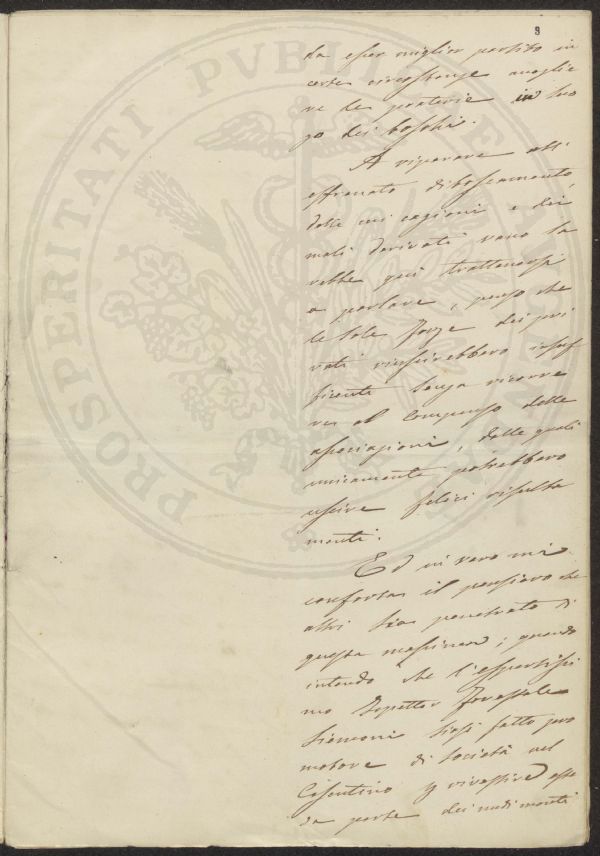 8
da esser miglior partito in
certe circostanze accoglie
re le praterie in luo
go dei boschi.
A riparare all'
effrenato diboscamento
delle cui cagioni e dei
mali derivati vano sa
rebbe qui trattenersi
a parlare, penso che
le sole forze dei pri
vati riuscirebbero insuf
ficienti senza ricorre
re al compenso delle
associazioni, dalle quali
unicamente potrebbero
uscire felici risulta
menti.
Ed in vero mi
conforta il pensiero che
altri sia penetrato di
questa massima; quando
intendo che l'espertissi
mo Ispettor Forestale
Siemoni siasi fatto pro
motore di Società nel
Casentino p rivestire esse
da parte dei nudi monti
PROSPERITATI PVBLICAE AVGENDAE